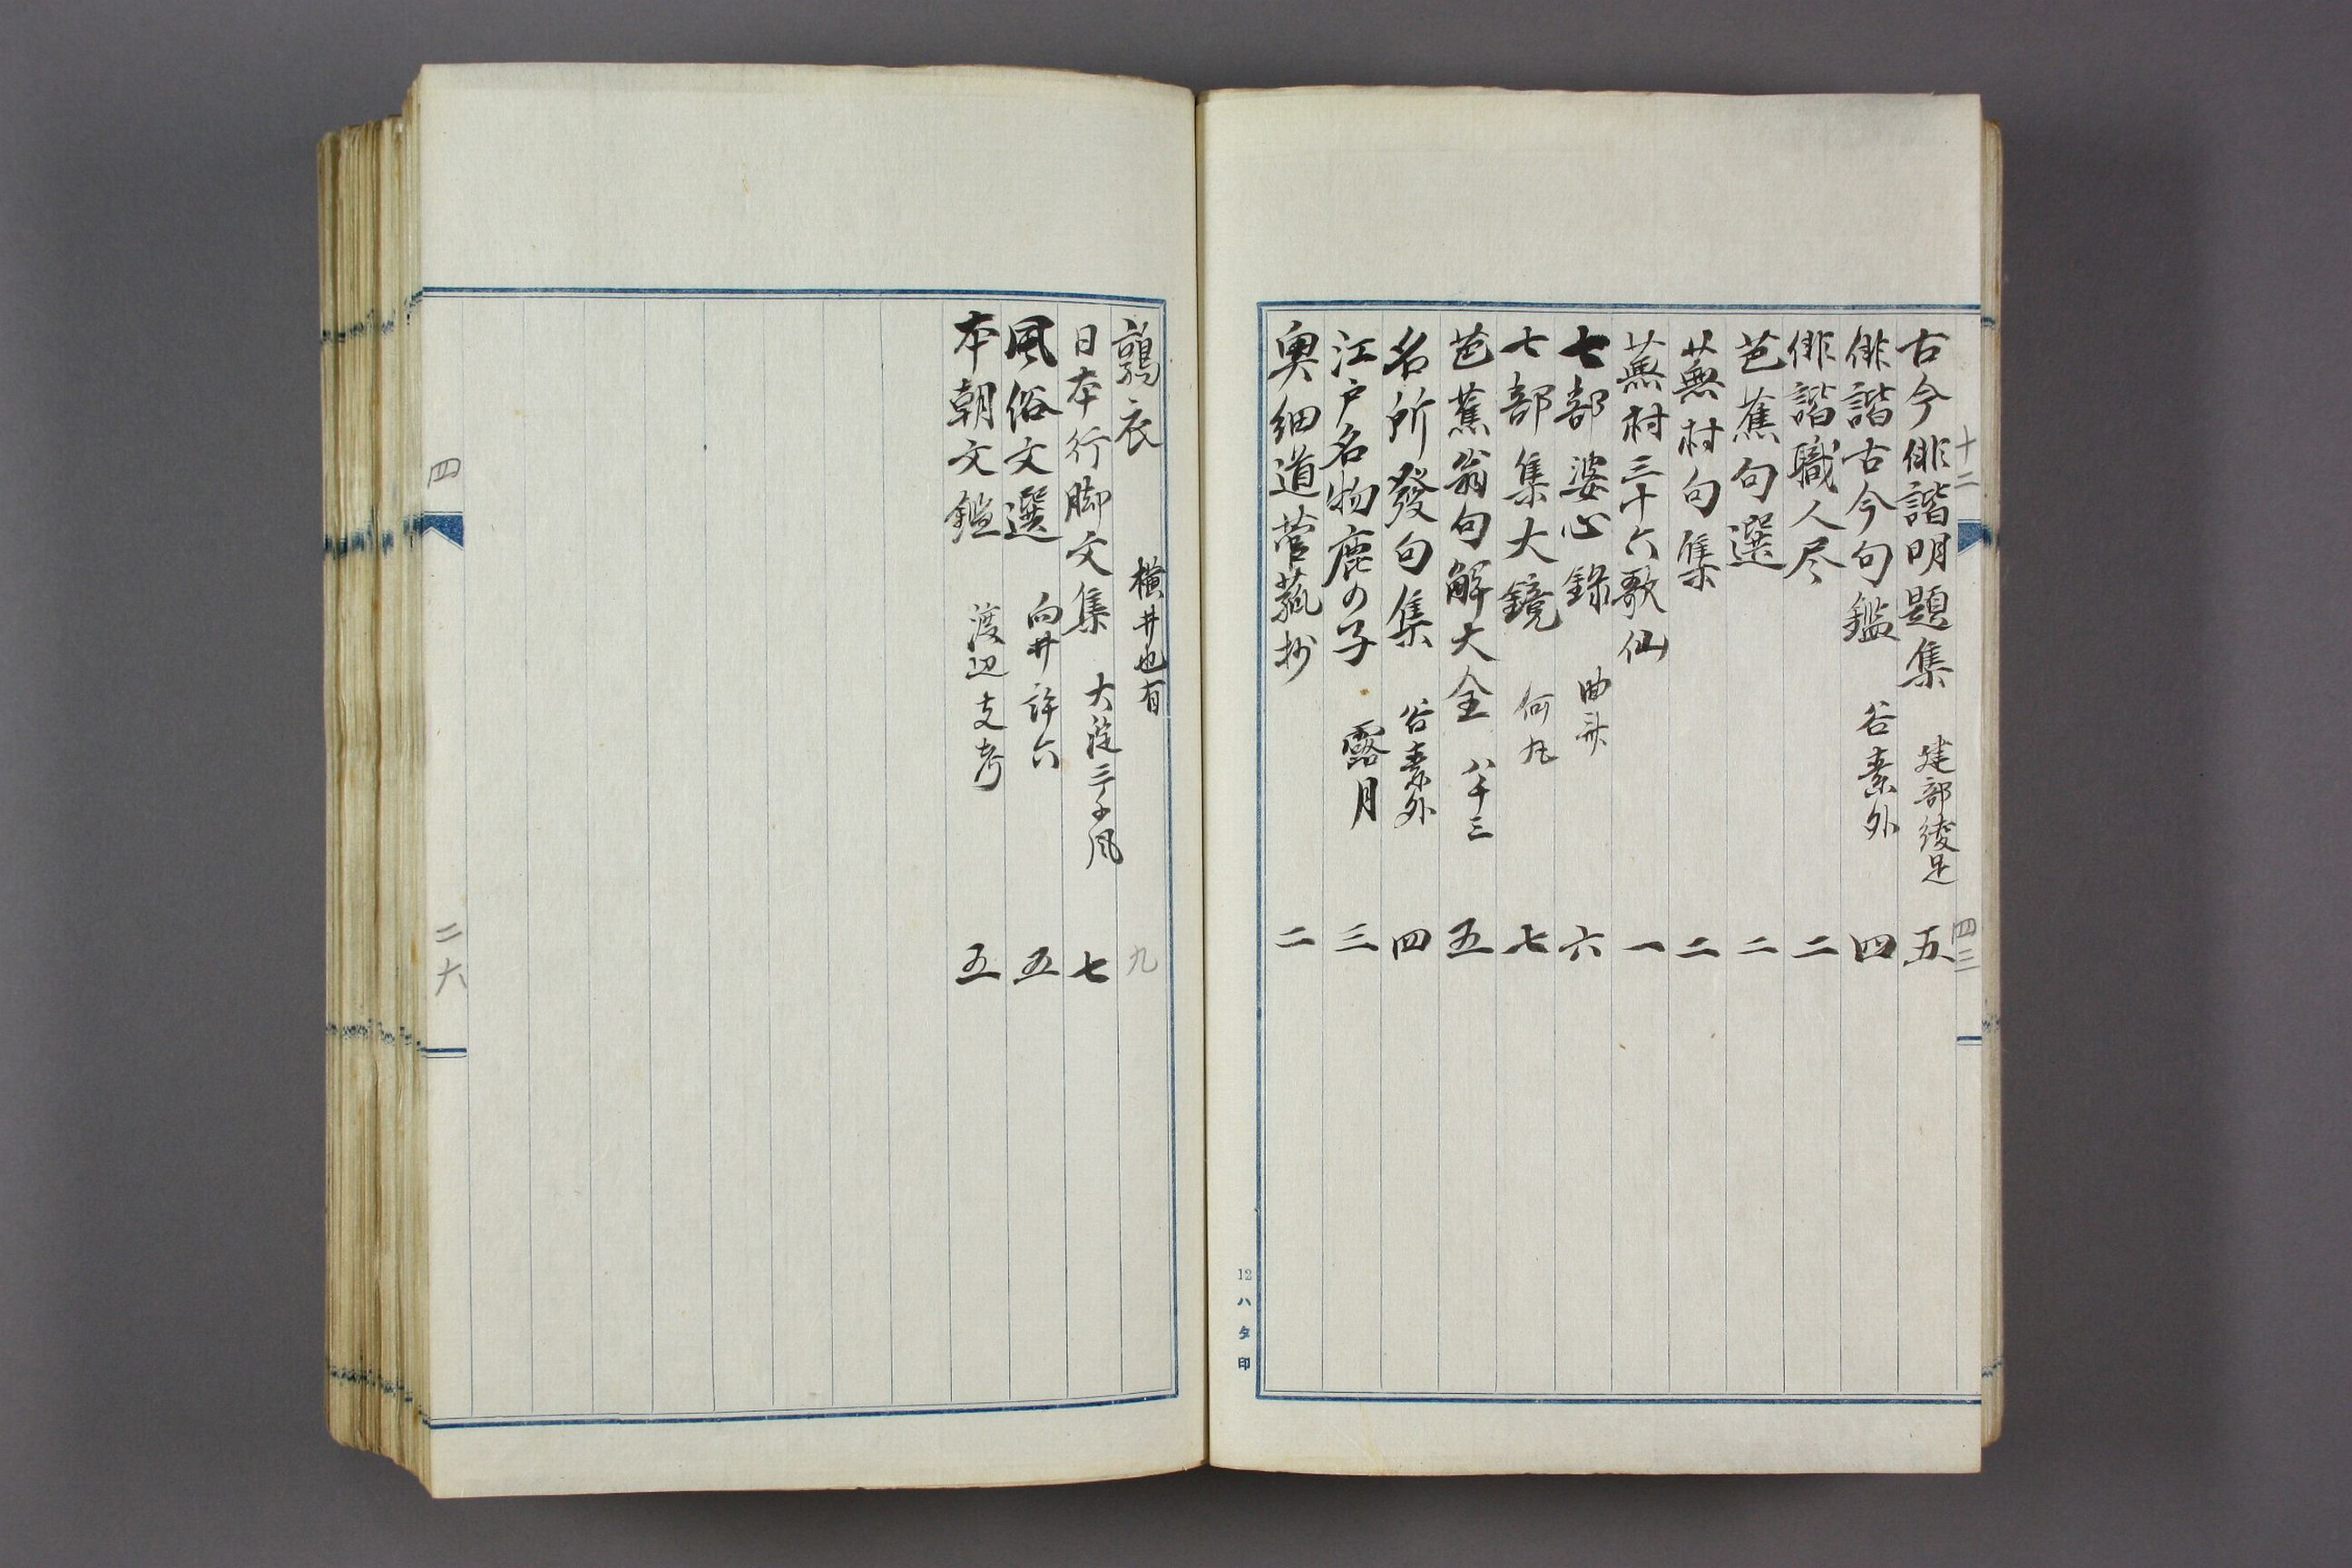 十二 四三
古今俳諧明題集 建部綾足 五
俳諧古今句鑑 谷素外 四
俳諧職人尽 二
芭蕉句選 二
蕪村句集 二
蕪村三十六歌仙 一
七部婆心録 曲斎 六
七部集大鏡 何丸 七
芭蕉翁句解大全 八千三 五
名所發句集 谷素外 四
江戸名物鹿の子 露月 三
奥細道菅菰抄 二
12ハタ印
鶉衣 横井也有 九
日本行脚文集 大淀三千風 七
風俗文選 向井許六 五
本朝文鑑 渡辺支考 五
四 二六